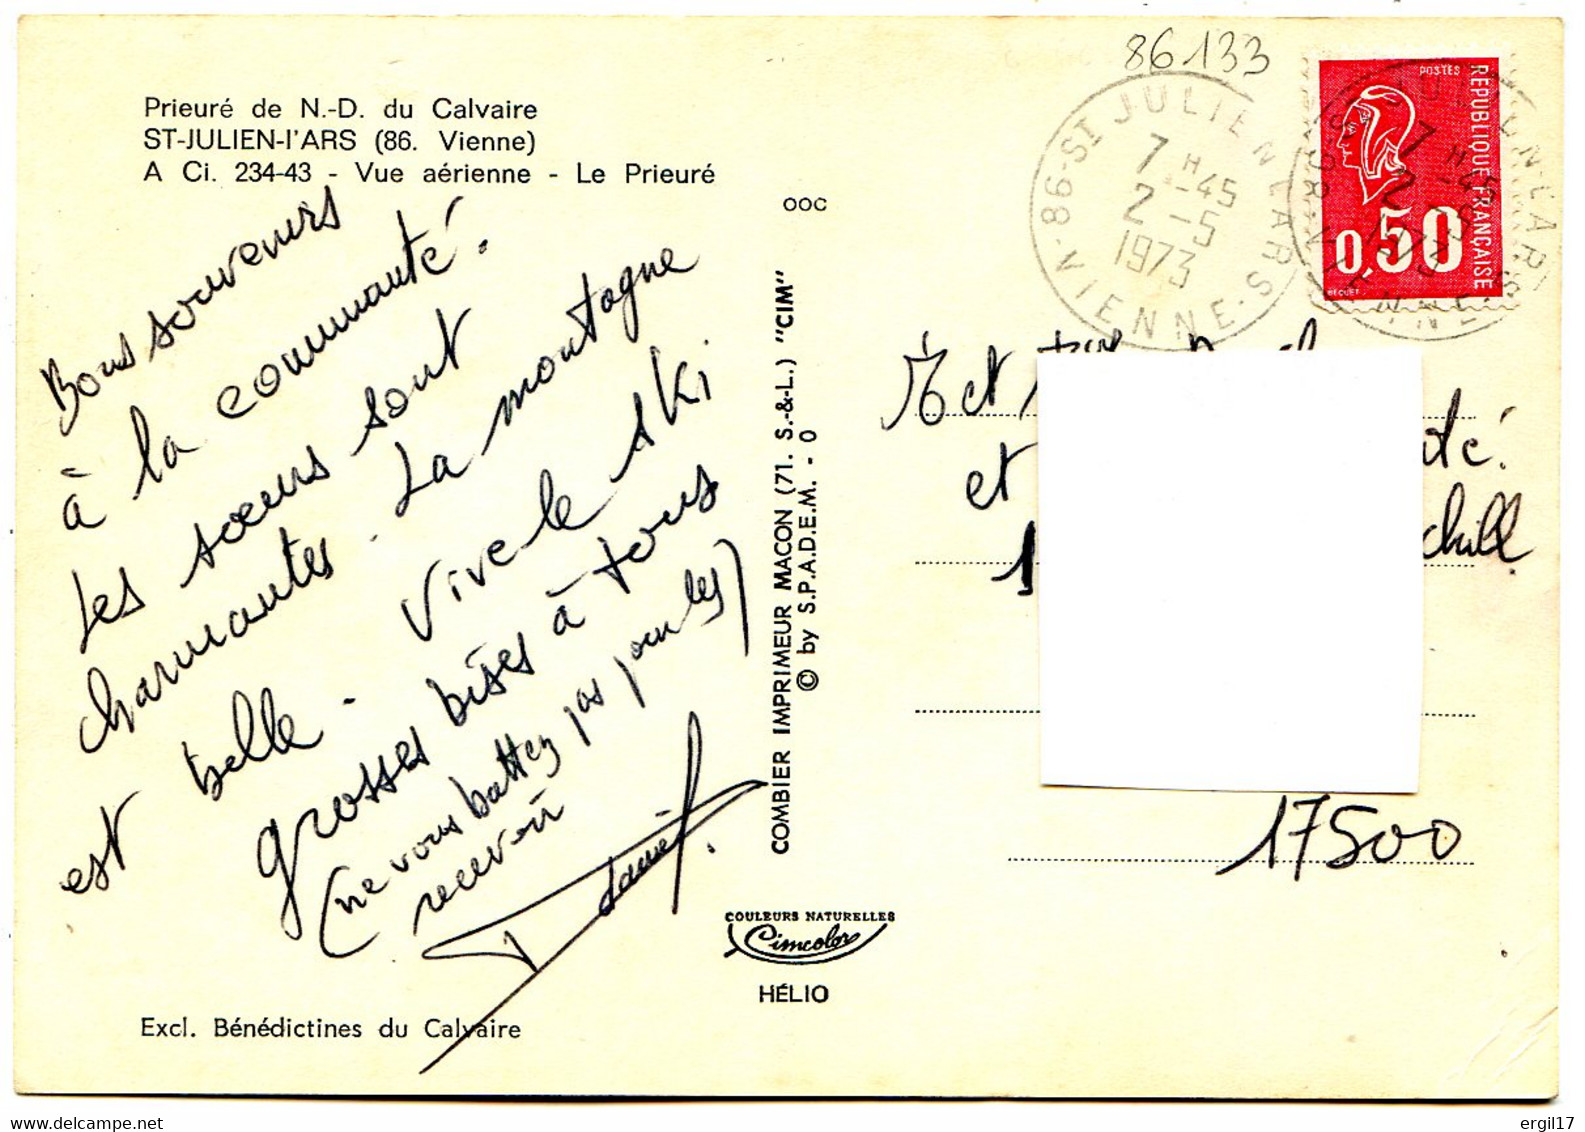 86133
Prieuré de N.-D. du Calvaire
ST-JULIEN-l'ARS (86. Vienne)
A Ci. 234-43 - Vue aérienne - Le Prieuré
OOC
86-ST JULIEN L'ARS
VIENNE
7 H -45
2 -5
1973
POSTES
REPUBLIQUE FRANÇAISE
0,50
BEQUET
Bons souvenirs
à la communauté.
Les sœurs sont
charmantes. La montagne
est belle - Vive le ski
grosses bises à tous
(ne vous battez pas pour les)
recevoir
Daniel.
COMBIER IMPRIMEUR MACON (71. S.-&-L.) "CIM"
© by S.P.A.D.E.M. - 0
et
17500
COULEURS NATURELLES
Cimcolor
HÉLIO
Excl. Bénédictines du Calvaire
www.delcampe.net
ergil17